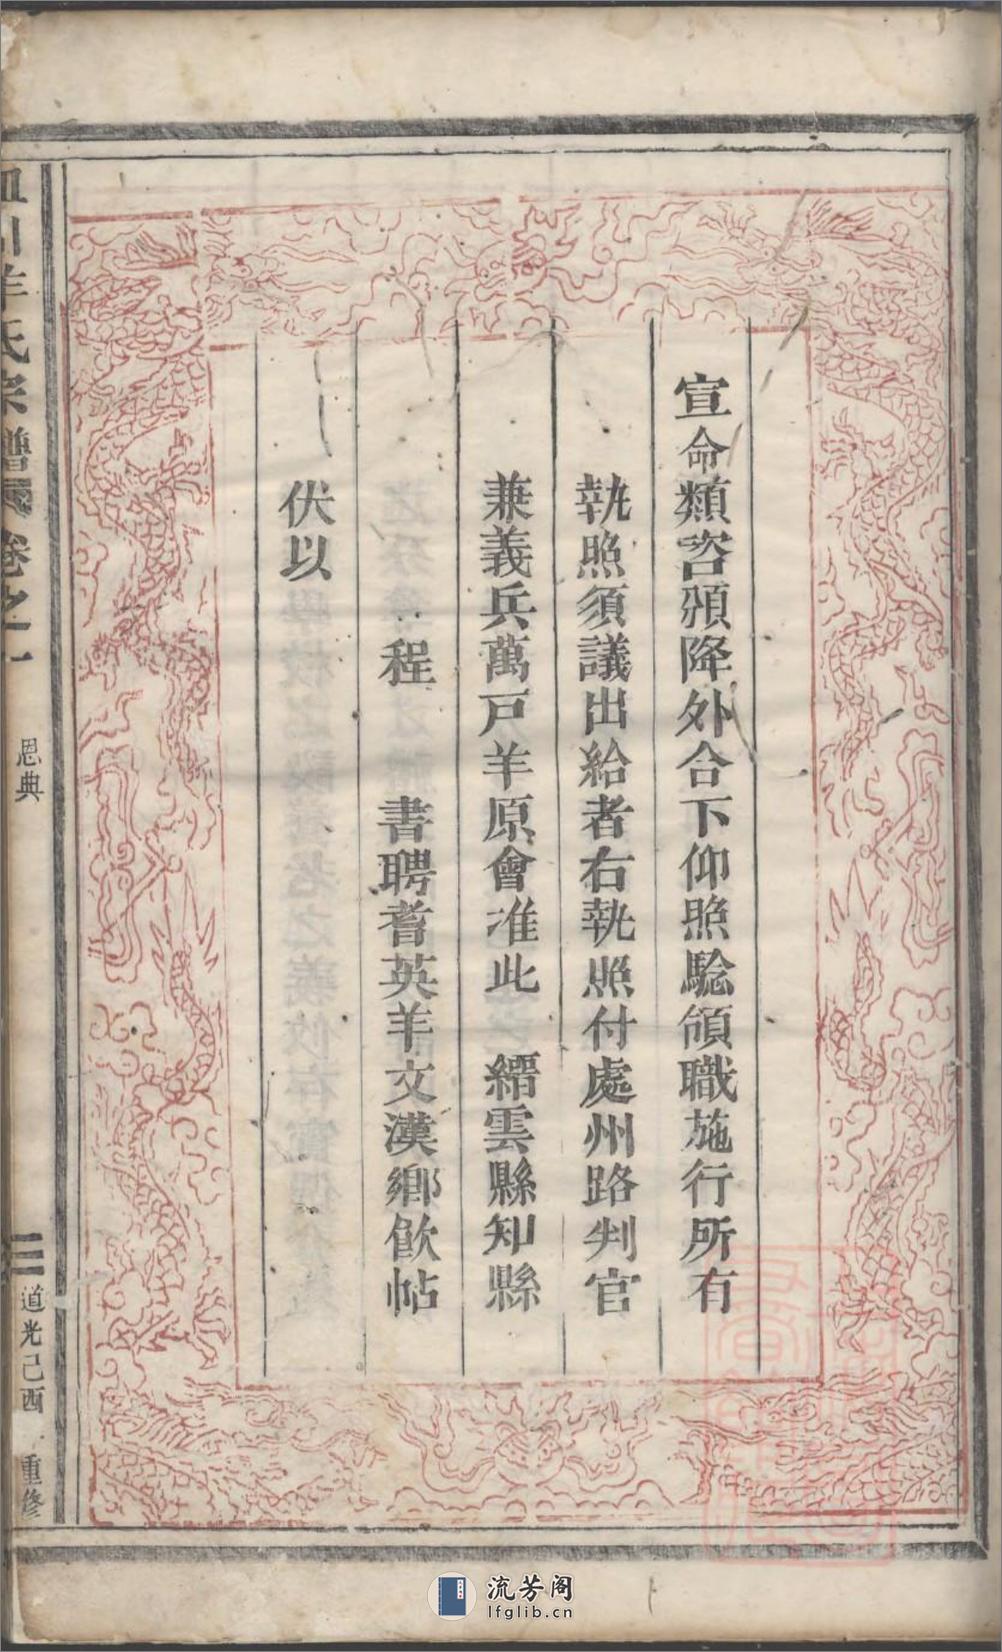 宣命類咨頒降外合下仰照驗領職施行所有
執照須議出給者右執照付處州路判官
兼義兵萬戸羊原會准此 縉雲縣知縣
程 書聘耆英羊文漢鄉飲帖
伏以
羊氏宗譜 卷之一
恩典
道光己酉 重修
流芳阁
lfglib.cn